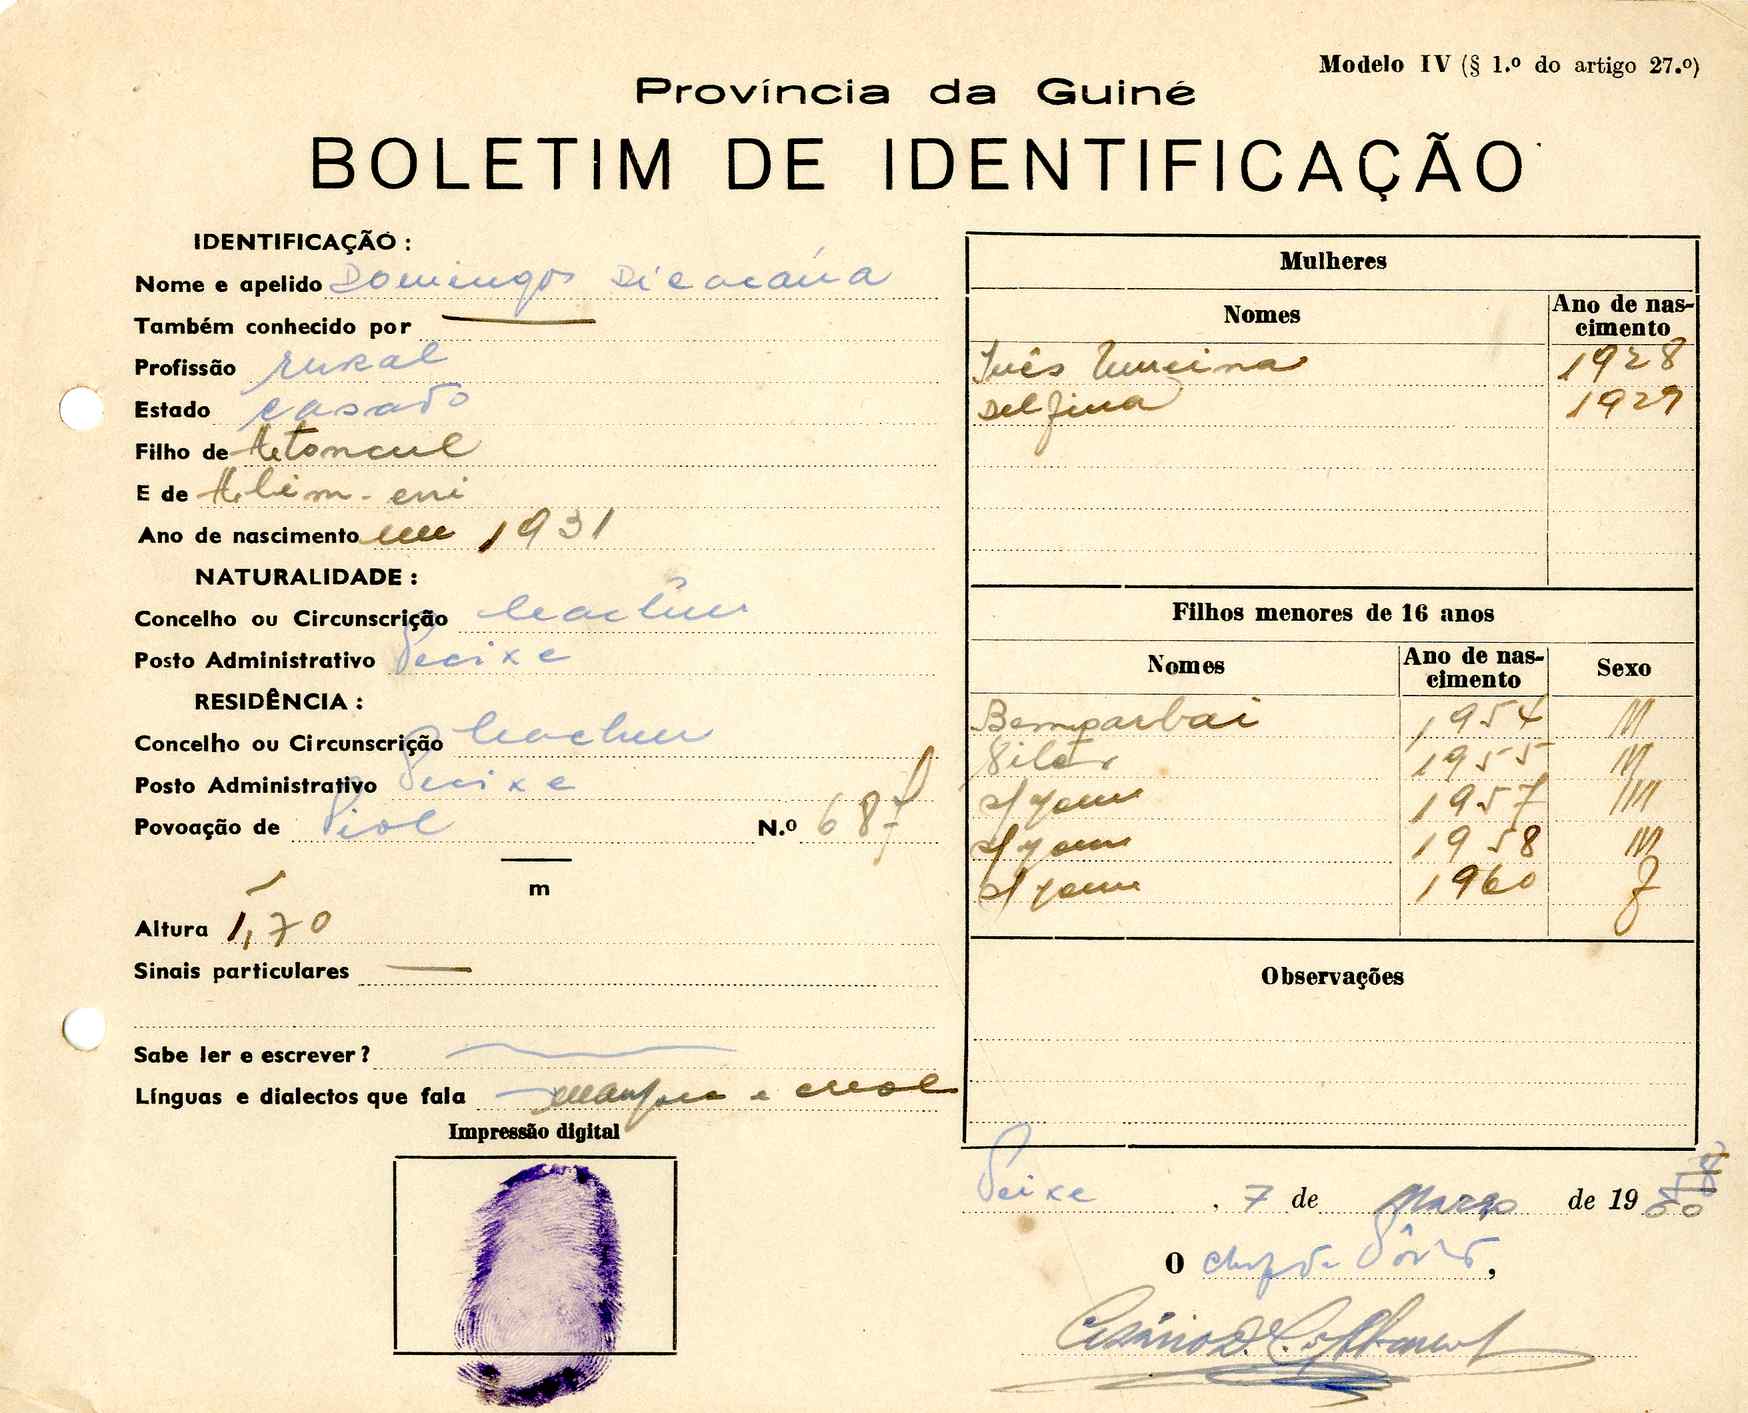 Modelo IV (§ 1.º do artigo 27.º)
Província da Guiné
BOLETIM DE IDENTIFICAÇÃO
IDENTIFICAÇÃO :
Nome e apelido Domingos
Também conhecido por
Profissão rural
Estado casado
Filho de
E de
Ano de nascimento em 1931
NATURALIDADE :
Concelho ou Circunscrição Cacheu
Posto Administrativo Pecixe
RESIDÊNCIA :
Concelho ou Circunscrição Cacheu
Posto Administrativo Pecixe
Povoação de Piol N.º 687
m
Altura 1,70
Sinais particulares
Sabe ler e escrever?
Línguas e dialectos que fala e creol
Impressão digital
Mulheres
Nomes Ano de nas-
cimento
Inês 1928
Delfina 1929
Filhos menores de 16 anos
Nomes Ano de nas-
cimento Sexo
Bemparbai 1954 M
1955 M
s/ nome 1957 M
s/ nome 1958 M
s/ nome 1960 F
Observações
Peixe , 7 de Março de 19
O chefe de Pôsto,